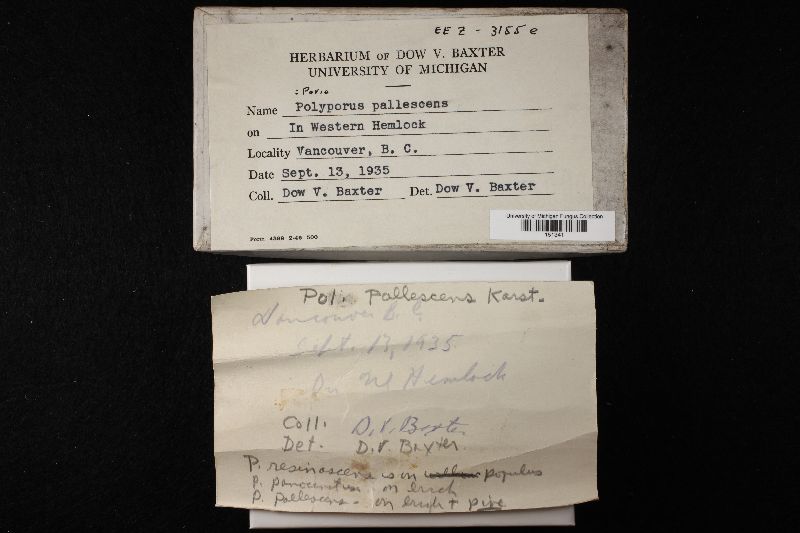 EEZ - 3155 e
HERBARIUM OF DOW V. BAXTER
UNIVERSITY OF MICHIGAN
: Poria
Name Polyporus pallescens
on In Western Hemlock
Locality Vancouver, B. C.
Date Sept. 13, 1935
Coll. Dow V. Baxter Det. Dow V. Baxter
University of Michigan Fungus Collection
Form 4388 2-46 500
Pol. Pallescens Karst.
Vancouver B. C.
Sept. 13, 1935
On W Hemlock
Coll. D. V. Baxter
Det. D. V. Baxter
P. resinascens is on populus
P. on birch
P. Pallescens - on birch + pine